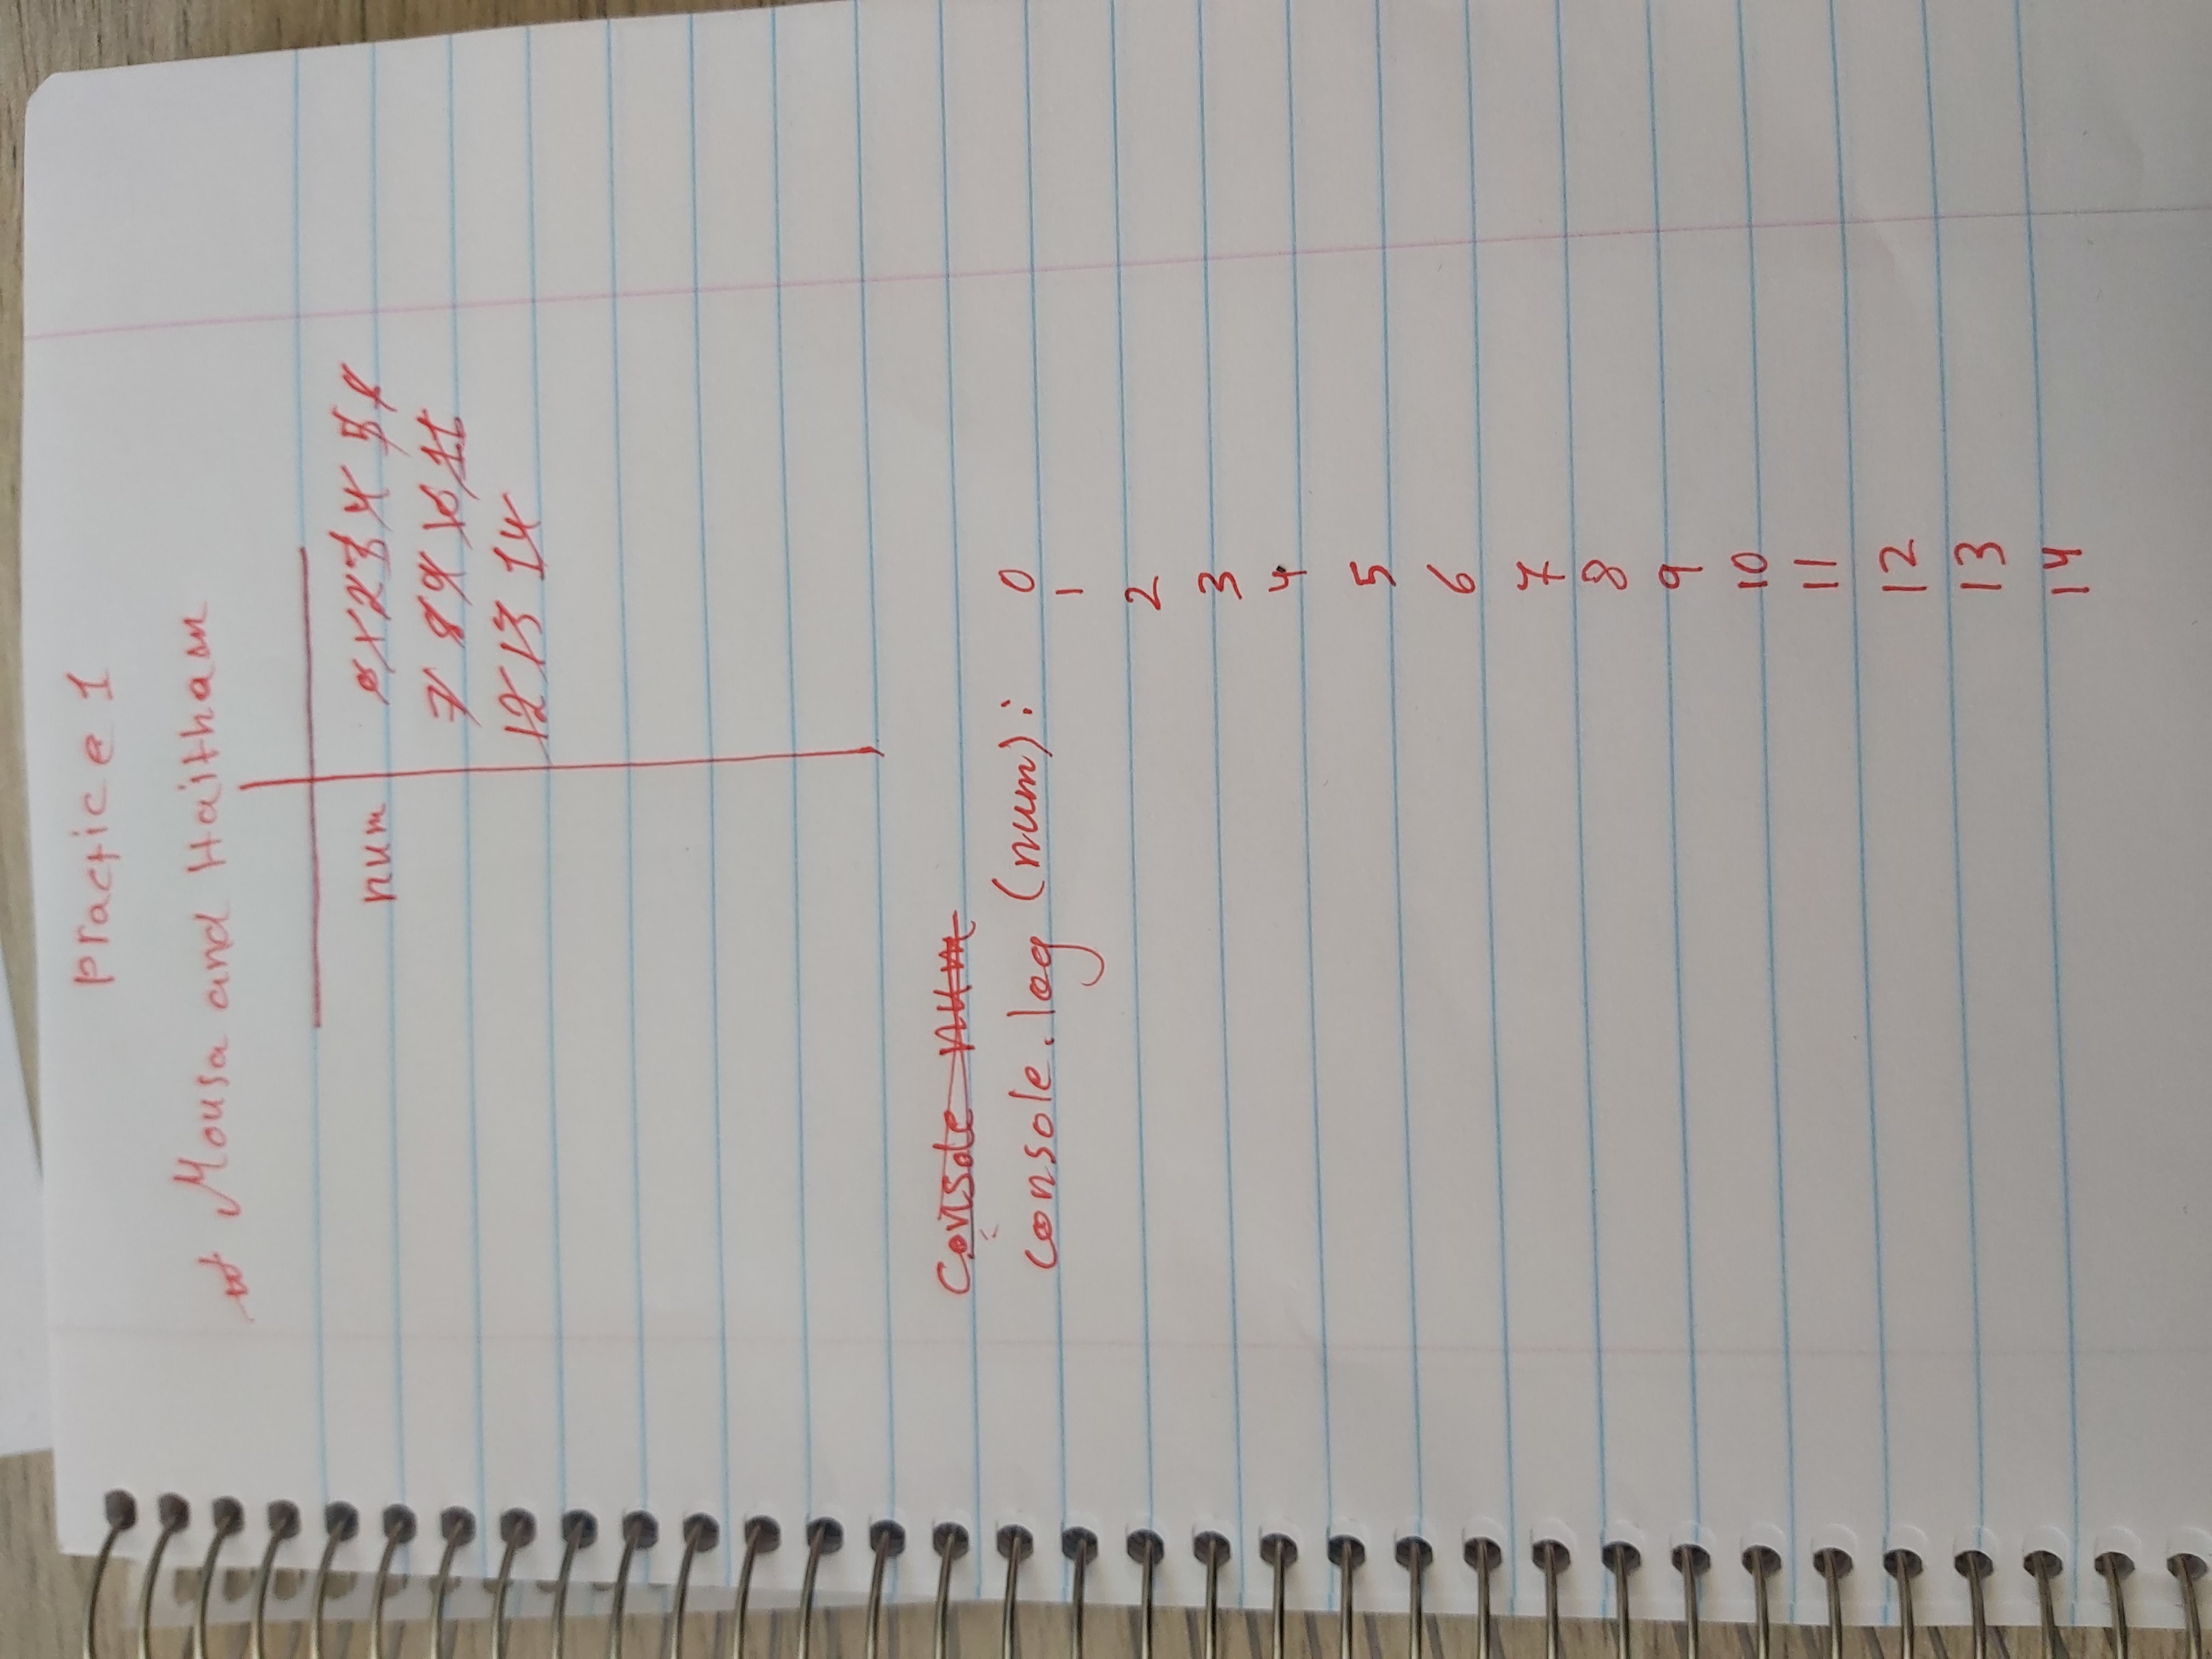 Practice 1
Mousa and Haitham
num 0 1 2 3 4 5 6
7 8 9 10 11
12 13 14
Console num
console.log (num): 0
1
2
3
4
5
6
7
8
9
10
11
12
13
14